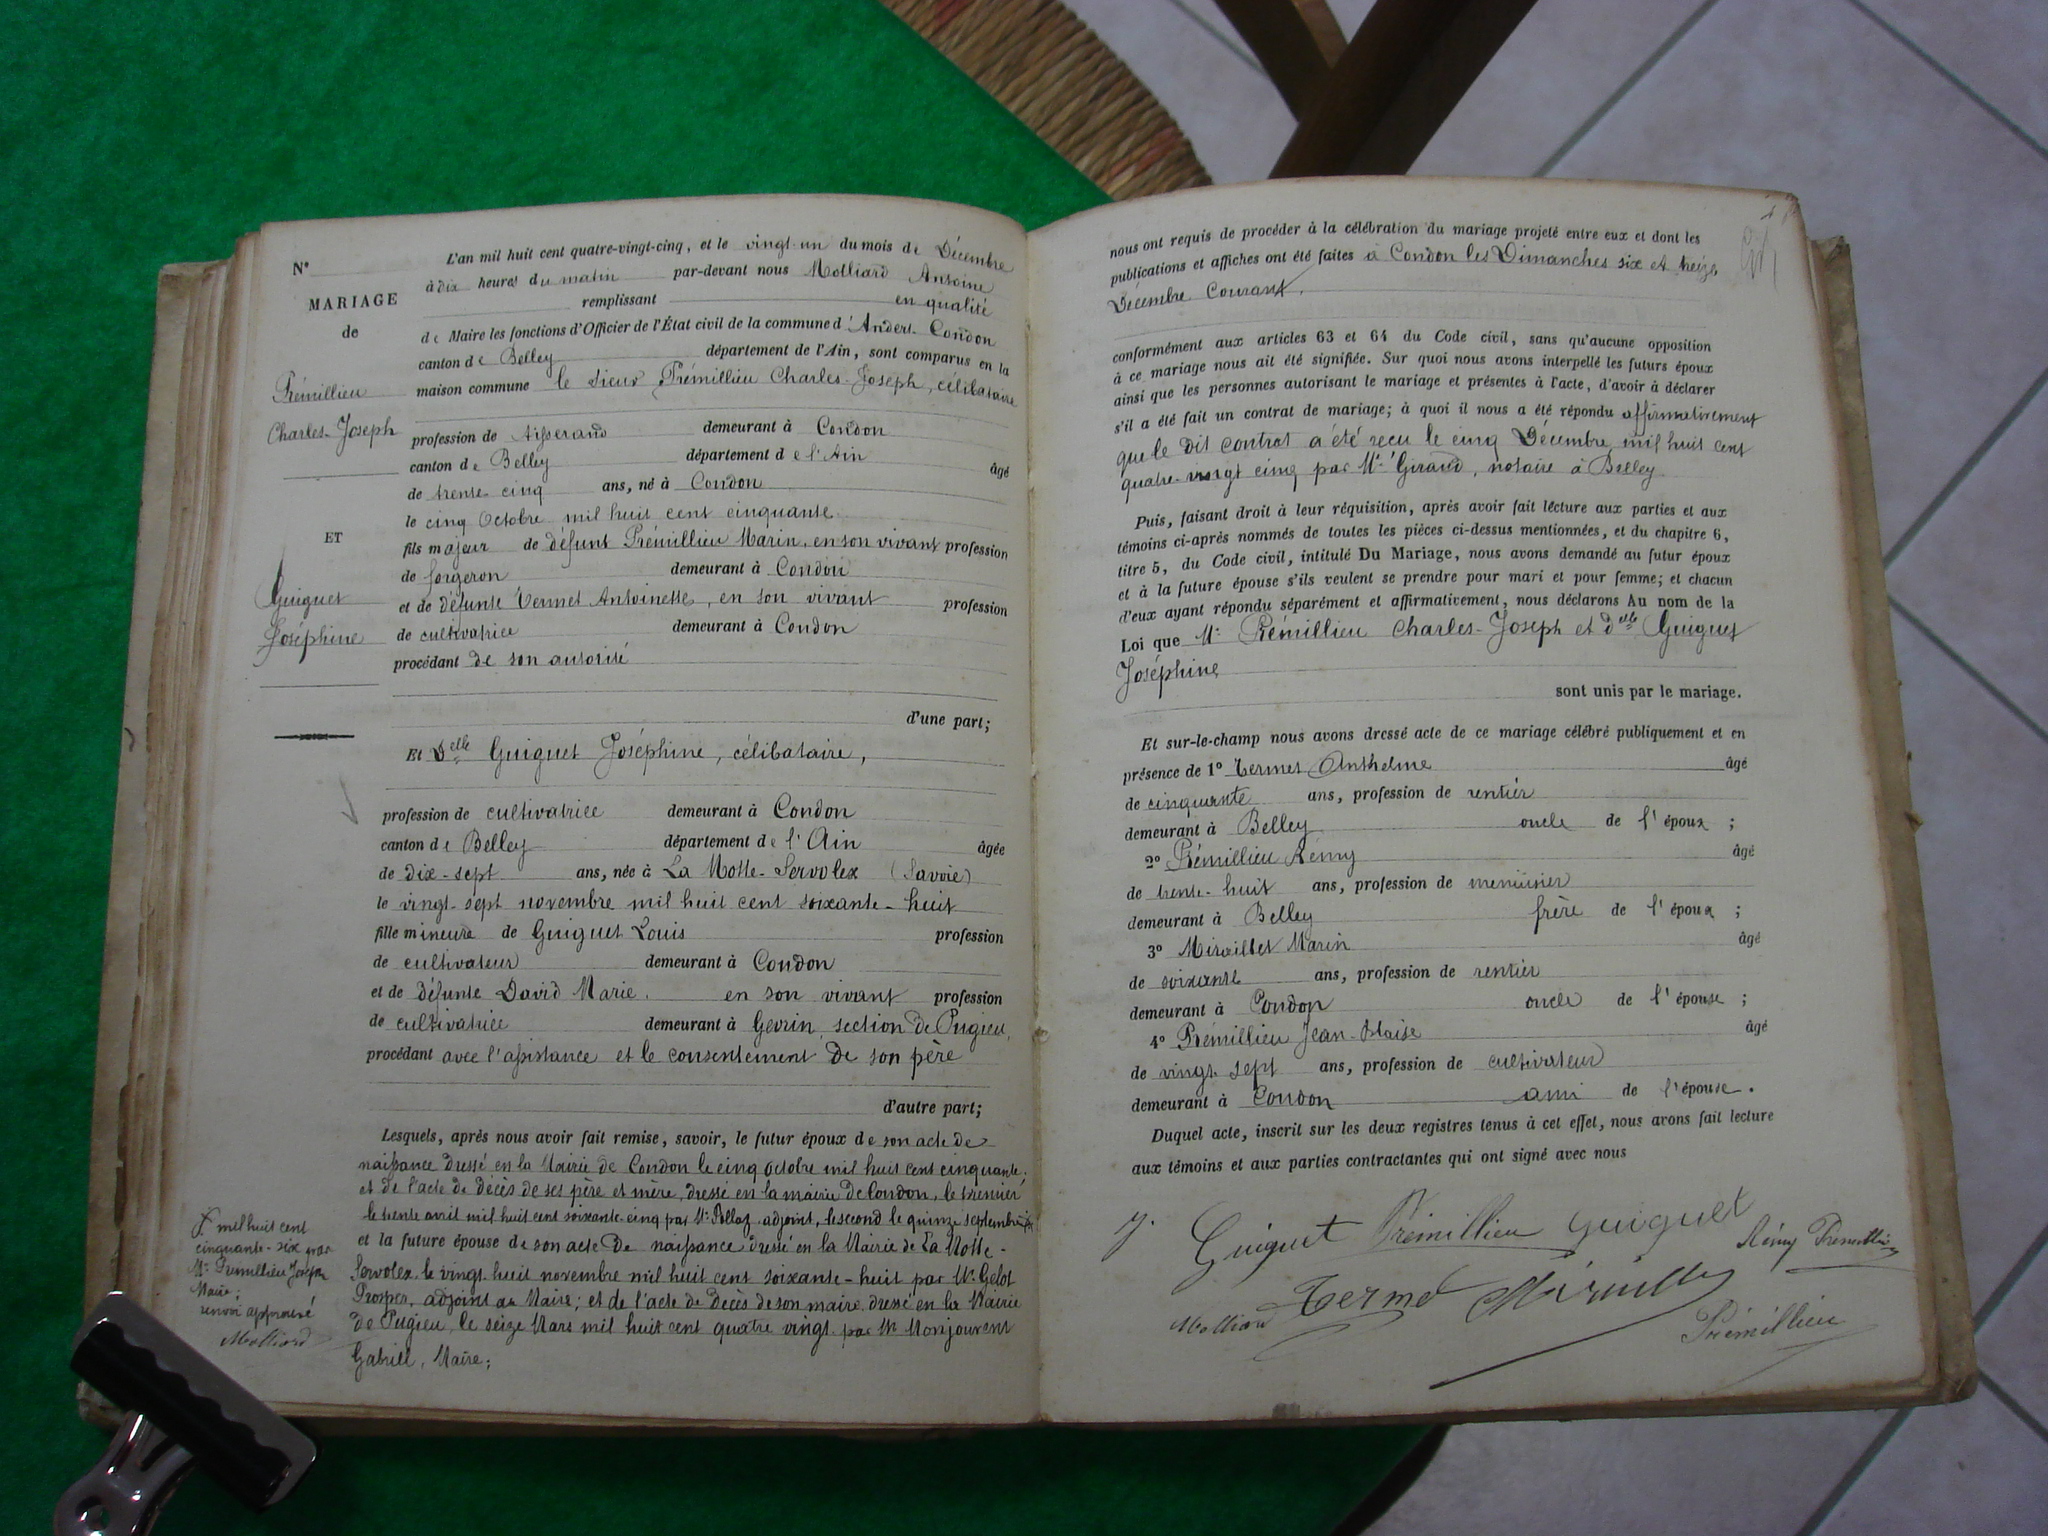 N°
MARIAGE
de
Prémillieu
Charles-Joseph
ET
Guiguet
Joséphine
L'an mil huit cent quatre-vingt-cinq, et le vingt-un du mois de Décembre
à dix heures du matin par-devant nous Molliard Antoine
remplissant en qualité
de Maire les fonctions d'Officier de l'État civil de la commune d'Andert-Condon
canton de Belley département de l'Ain, sont comparus en la
maison commune le sieur Prémillieu Charles-Joseph, célibataire
profession de Tisserand demeurant à Condon
canton de Belley département de l'Ain âgé
de trente-cinq ans, né à Condon
le cinq Octobre mil huit cent cinquante
fils majeur de défunt Prémillieu Marin, en son vivant profession
de forgeron demeurant à Condon
et de défunte Antoinette, en son vivant profession
de cultivatrice demeurant à Condon
procédant de son autorité
d'une part;
Et Delle Guiguet Joséphine, célibataire,
profession de cultivatrice demeurant à Condon
canton de Belley département de l'Ain âgée
de dix-sept ans, née à La Motte-Servolex (Savoie)
le vingt-sept novembre mil huit cent soixante-huit
fille mineure de Guiguet Louis profession
de cultivateur demeurant à Condon
et de défunte David Marie. en son vivant profession
de cultivatrice demeurant à Gevrin, section de Pugieu,
procédant avec l'assistance et le consentement de son père
d'autre part;
Lesquels, après nous avoir fait remise, savoir, le futur époux de son acte de
naissance dressé en la Mairie de Condon le cinq octobre mil huit cent cinquante;
et de l'acte de décès de ses père et mère, dressé en la mairie de Condon, le premier
le trente avril mil huit cent soixante-cinq par Mr Pollaz adjoint, le second le quinze septembre
et la future épouse de son acte de naissance dressé en la Mairie de La Motte-
Servolex le vingt-huit novembre mil huit cent soixante-huit par Mr Gelot
Prosper, adjoint au Maire; et de l'acte de décès de son maire dressé en la Mairie
de Pugieu, le seize Mars mil huit cent quatre vingt par Mr Monjouvent
Gabriel, Maire;
mil huit cent
cinquante-six par
Mr Prémillieu Joseph
Maire;
renvoi approuvé
Molliard
nous ont requis de procéder à la célébration du mariage projeté entre eux et dont les
publications et affiches ont été faites à Condon les Dimanches six et treize
Décembre Courant.
conformément aux articles 63 et 64 du Code civil, sans qu'aucune opposition
à ce mariage nous ait été signifiée. Sur quoi nous avons interpellé les futurs époux
ainsi que les personnes autorisant le mariage et présentes à l'acte, d'avoir à déclarer
s'il a été fait un contrat de mariage; à quoi il nous a été répondu affirmativement
que le dit contrat a été reçu le cinq Décembre mil huit cent
quatre-vingt cinq par Me Giraud, notaire à Belley
Puis, faisant droit à leur réquisition, après avoir fait lecture aux parties et aux
témoins ci-après nommés de toutes les pièces ci-dessus mentionnées, et du chapitre 6,
titre 5, du Code civil, intitulé Du Mariage, nous avons demandé au futur époux
et à la future épouse s'ils veulent se prendre pour mari et pour femme; et chacun
d'eux ayant répondu séparément et affirmativement, nous déclarons Au nom de la
Loi que Mr Prémillieu Charles-Joseph et delle Guiguet
Joséphine
sont unis par le mariage.
Et sur-le-champ nous avons dressé acte de ce mariage célébré publiquement et en
présence de 1° Termet Anthelme âgé
de cinquante ans, profession de rentier
demeurant à Belley oncle de l'époux;
2° Prémillieu Rémy âgé
de trente-huit ans, profession de menuisier
demeurant à Belley frère de l'époux;
3° Miraillet Marin âgé
de soixante ans, profession de rentier
demeurant à Condon oncle de l'épouse;
4° Prémillieu Jean-Blaise âgé
de vingt-sept ans, profession de cultivateur
demeurant à Condon ami de l'épouse.
Duquel acte, inscrit sur les deux registres tenus à cet effet, nous avons fait lecture
aux témoins et aux parties contractantes qui ont signé avec nous
J. Guiguet Prémillieu Guiguet Rémy Prémillieu
Molliard Termet Prémillieu